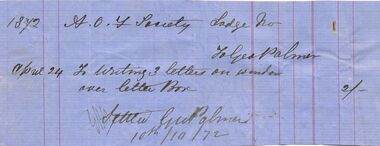 1872 A. O. F. Society Lodge No
To Geo Palmer
April 24 To Writing 3 letters on window
over letter Box 2/-
Settled Geo Palmer
10th/10/72